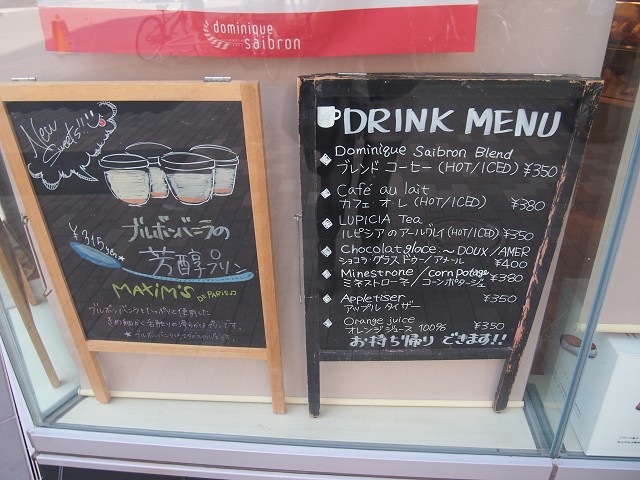 dominique
saibron
New
Sweets!!
ブルボンバニラの
¥315yen*
芳醇プリン
MAXIM'S DE PARIS♫
DRINK MENU
Dominique Saibron Blend
ブレンド コーヒー (HOT/ICED) ¥350
Café au lait
カフェ オレ (HOT/ICED) ¥380
LUPICIA Tea
ルピシアの アールグレイ (HOT/ICED) ¥350
Chocolat glacé ~ DOUX/AMER
ショコラ・グラス ドゥー/アメール ¥400
Minestrone / corn potage ¥380
ミネストローネ / コーンポタージュ
Appletiser ¥350
アップル タイザー
Orange juice ¥350
オレンジジュース 100%
お持ち帰り できます!!